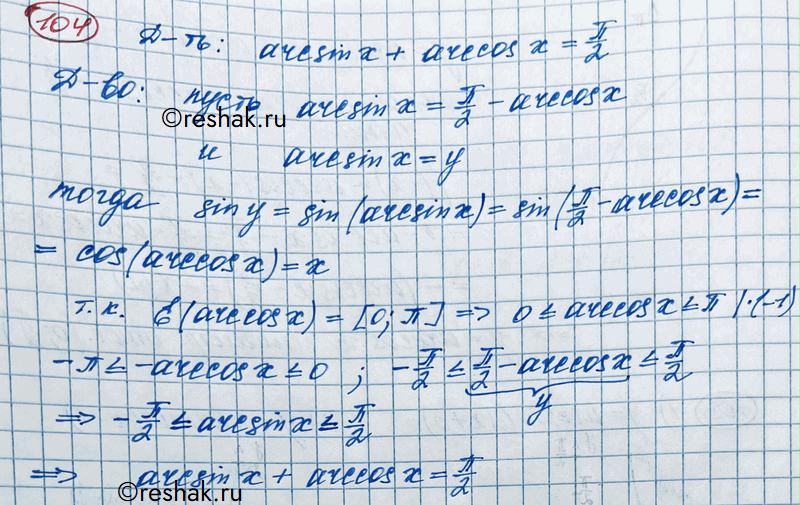 104
Д-ть: arcsin x + arccos x = π/2
Д-во: пусть arcsin x = π/2 - arccos x
©reshak.ru
и arcsin x = y
тогда sin y = sin(arcsin x) = sin(π/2 - arccos x) =
= cos(arccos x) = x
т.к. E(arccos x) = [0; π] => 0 ≤ arccos x ≤ π |·(-1)
-π ≤ -arccos x ≤ 0 ; -π/2 ≤ π/2 - arccos x ≤ π/2
y
=> -π/2 ≤ arcsin x ≤ π/2
=> arcsin x + arccos x = π/2
©reshak.ru